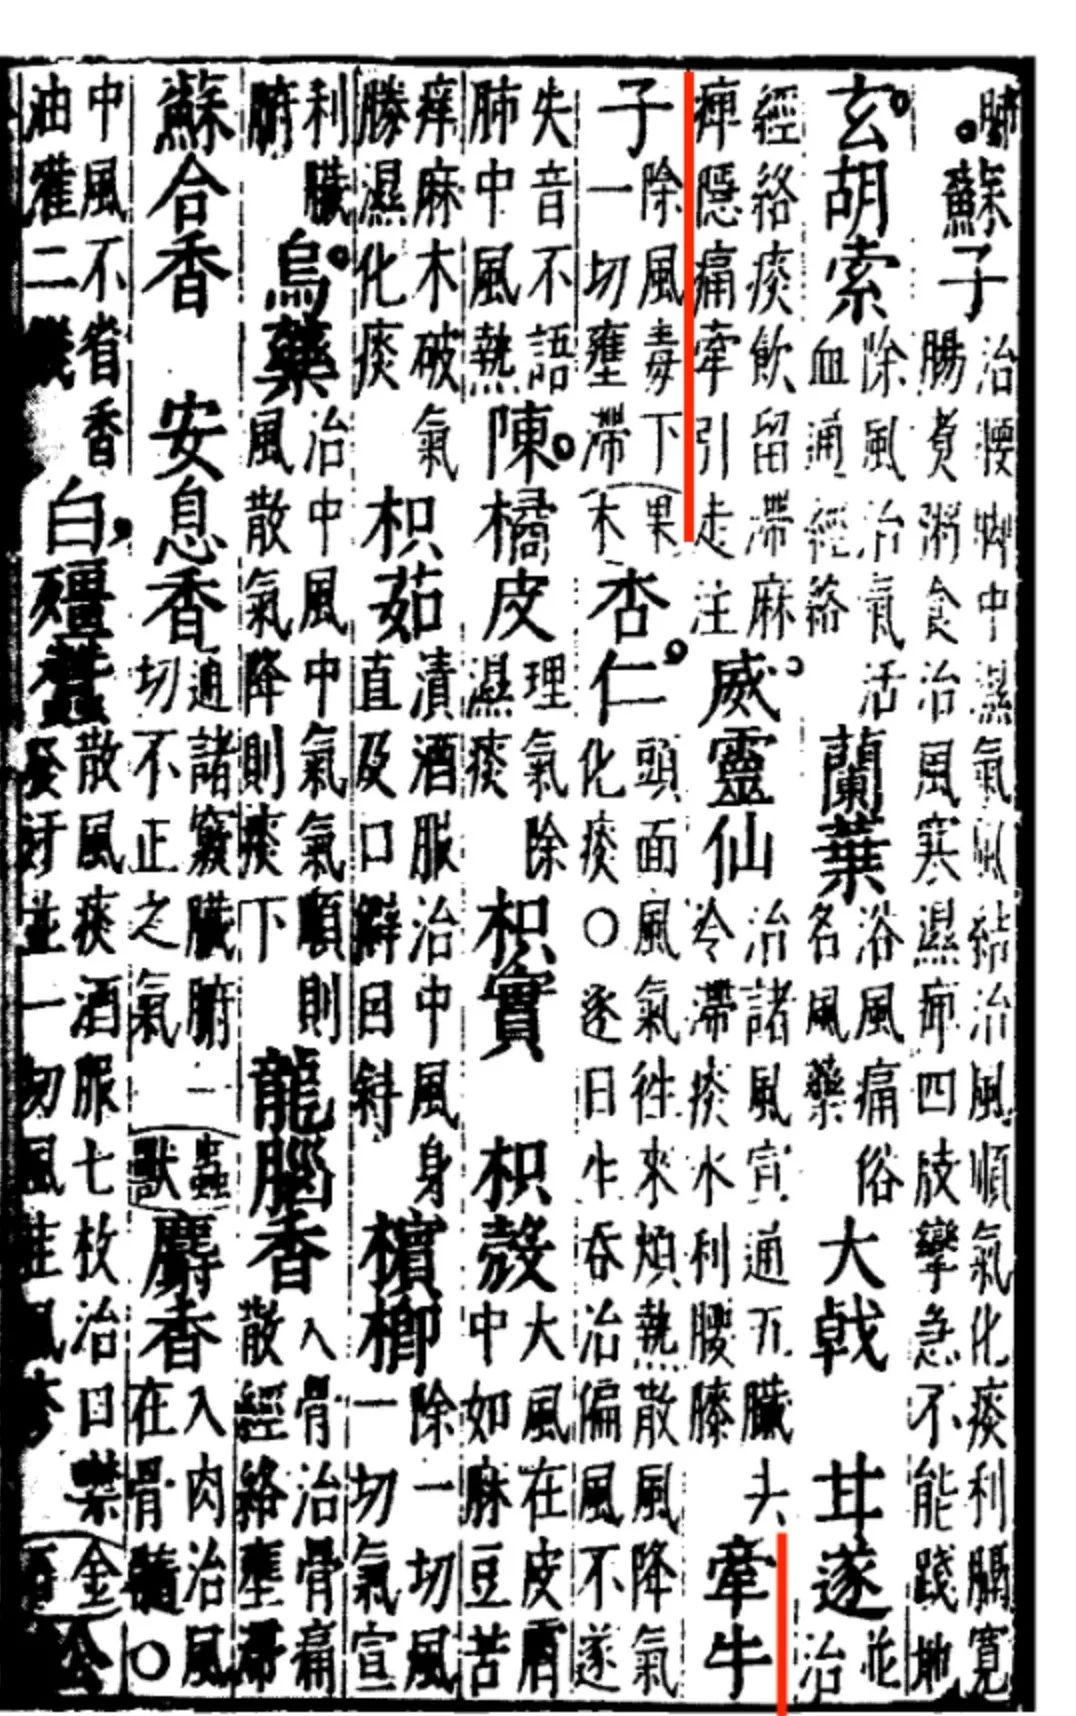 肺蘇子治腰脚中濕氣風結治風順氣化痰利膈寬腸煮粥食治風寒濕痹四肢攣急不能踐地
玄胡索除風治氣活血通經絡蘭葉浴風痛俗名風藥大戟甘遂並治
經絡痰飲留滯麻痺隱痛牽引走注威靈仙治諸風宣通五臟去冷滯痰水利腰膝牽牛
子除風毒下一切壅滯果木杏仁頭面風氣往來煩熱散風降氣化痰○逐日生吞治偏風不遂
失音不語肺中風熱陳橘皮理氣除濕痰枳實枳殼大風在皮膚中如麻豆苦
痒麻木破氣勝濕化痰枳茹漬酒服治中風身直及口僻目斜檳榔除一切風一切氣宣
利臟腑烏藥治中風中氣氣順則風散氣降則痰下龍腦香入骨治骨痛散經絡壅滯
蘇合香安息香通諸竅臟腑一切不正之氣蟲獸麝香入肉治風在骨髓○
中風不省香油灌二錢白殭蠶散風痰酒服七枚治口噤發汗並一切風疰風疹金